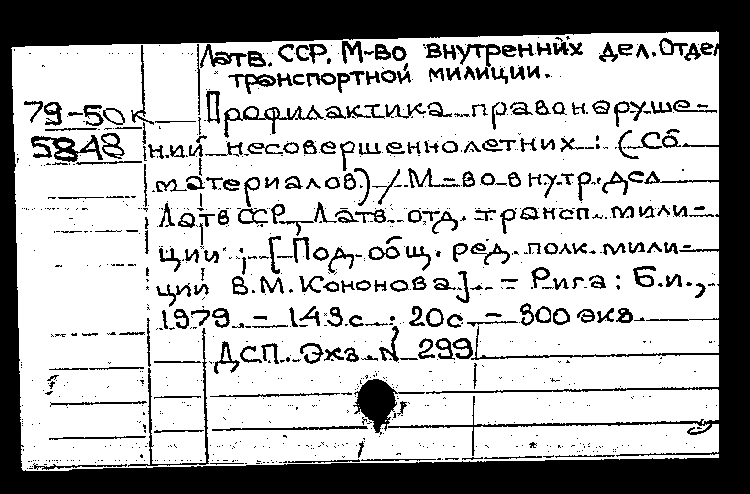 Латв. ССР. М-во внутренних дел. Отдел
транспортной милиции.
79-50к Профилактика правонаруше-
5848 ний несовершеннолетних : (Сб.
материалов) / М-во внутр. дел
Латв ССР, Латв. отд. трансп. мили-
ции ; [Под общ. ред. полк. мили-
ции В.М. Кононова]. - Рига : Б.и.,
1979. - 149 с. ; 20 с. - 300 экз.
ДСП. Экз. N 299